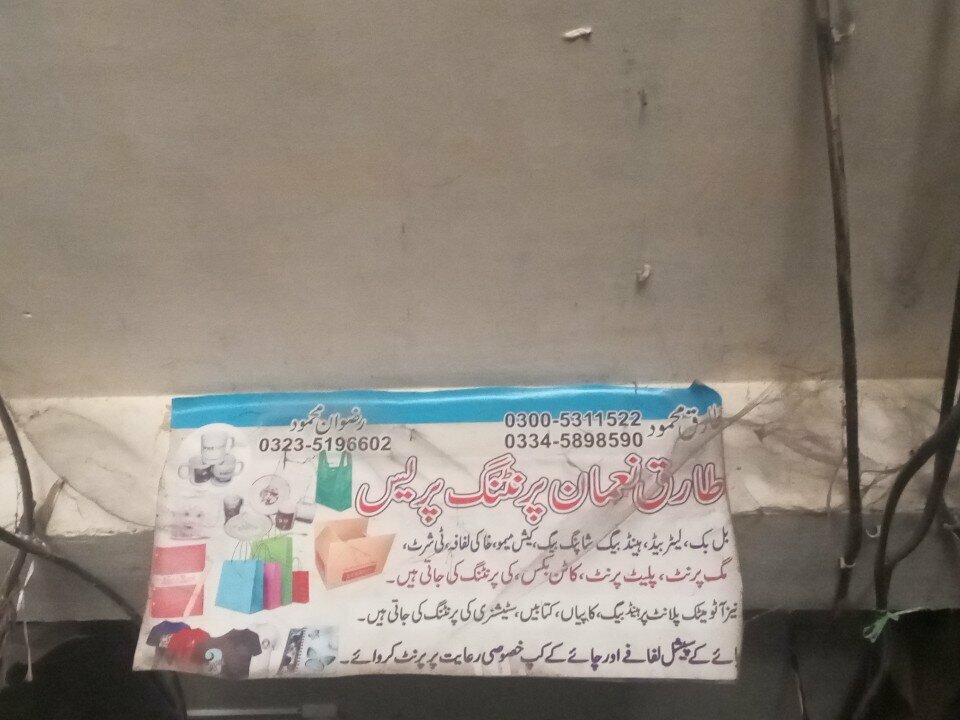 طارق محمود 0300-5311522 رضوان محمود
0334-5898590 0323-5196602
طارق نعمان پرنٹنگ پریس
بل بک، لیٹر پیڈ، ہینڈ بیگ شاپنگ بیگ، کیش میمو، خاکی لفافہ، ٹی شرٹ،
مگ پرنٹ، پلیٹ پرنٹ، کاٹن بکس، کی پرنٹنگ کی جاتی ہیں۔
نیز آٹومیٹک پلانٹ پر ہینڈ بیگ، کاپیاں، کتابیں، سٹیشنری کی پرنٹنگ کی جاتی ہیں۔
کے سپیشل لفافے اور چائے کے کپ خصوصی رعایت پر پرنٹ کروائے۔